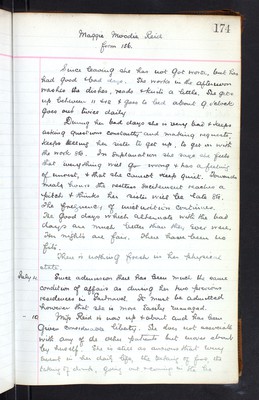 174
Maggie Moodie Reid
from 126.
Since leaving she has not got worse, but has
had good & bad days. She works in the afternoon
washes the dishes, reads & knits a little. She gets
up between 11 & 12 & goes to bed about 9 o'clock
Goes out twice daily
During her bad days she is very bad & keeps
asking questions constantly and making requests,
keeps telling her sister to get up, to get on with
the work etc. In explanation she says she feels
that everything is wrong & has a feeling
of unrest, & that she cannot keep quiet. Towards
meals hours the restless excitement reaches a
pitch & thinks her meals will be late etc.
The frequency of micturition continues.
The good days which alternate with the bad
days are much better than they ever were.
The nights are fair. There have been no
fits.
There is nothing fresh in her physical
state.
July 11. Since admission there has been much the same
condition of affairs as during her two previous
residences in It must be admitted
however that she is more easily managed.
Miss Reid is now up & about and has been
given considerable liberty. She does not associate
with any of the other patients but moves about
by herself. She is still as anxious that every
event in her daily life, the taking of food, the
taking of drink, going out & coming in etc.